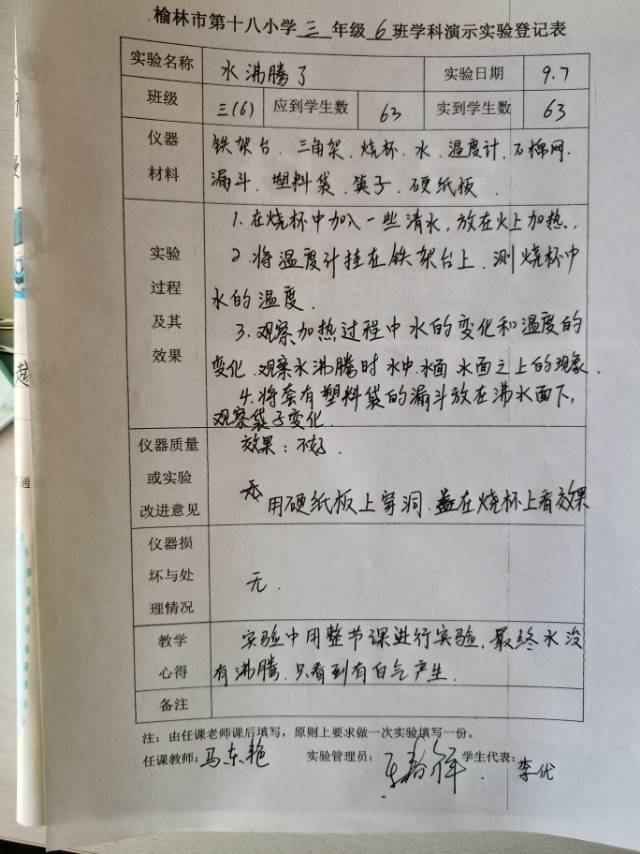 榆林市第十八小学三年级6班学科演示实验登记表
实验名称 水沸腾了 实验日期 9.7
班级 三(6) 应到学生数 63 实到学生数 63
仪器材料
铁架台、三角架、烧杯、水、温度计、石棉网、
漏斗、塑料袋、筷子、硬纸板、
实验过程及其效果
1.在烧杯中加入一些清水,放在火上加热。
2.将温度计挂在铁架台上,测烧杯中
水的温度.
3.观察加热过程中水的变化和温度的
变化、观察水沸腾时水中、水面、水面之上的现象、
4.将套有塑料袋的漏斗放在沸水面下,
观察袋子变化
仪器质量或实验改进意见
效果:不好.
用硬纸板上穿洞、盖在烧杯上看效果
仪器损坏与处理情况
无.
教学心得
实验中用整节课进行实验,最终水没
有沸腾、只看到有白气产生.
备注
注:由任课老师课后填写,原则上要求做一次实验填写一份。
任课教师:马东艳 实验管理员: 学生代表:李优